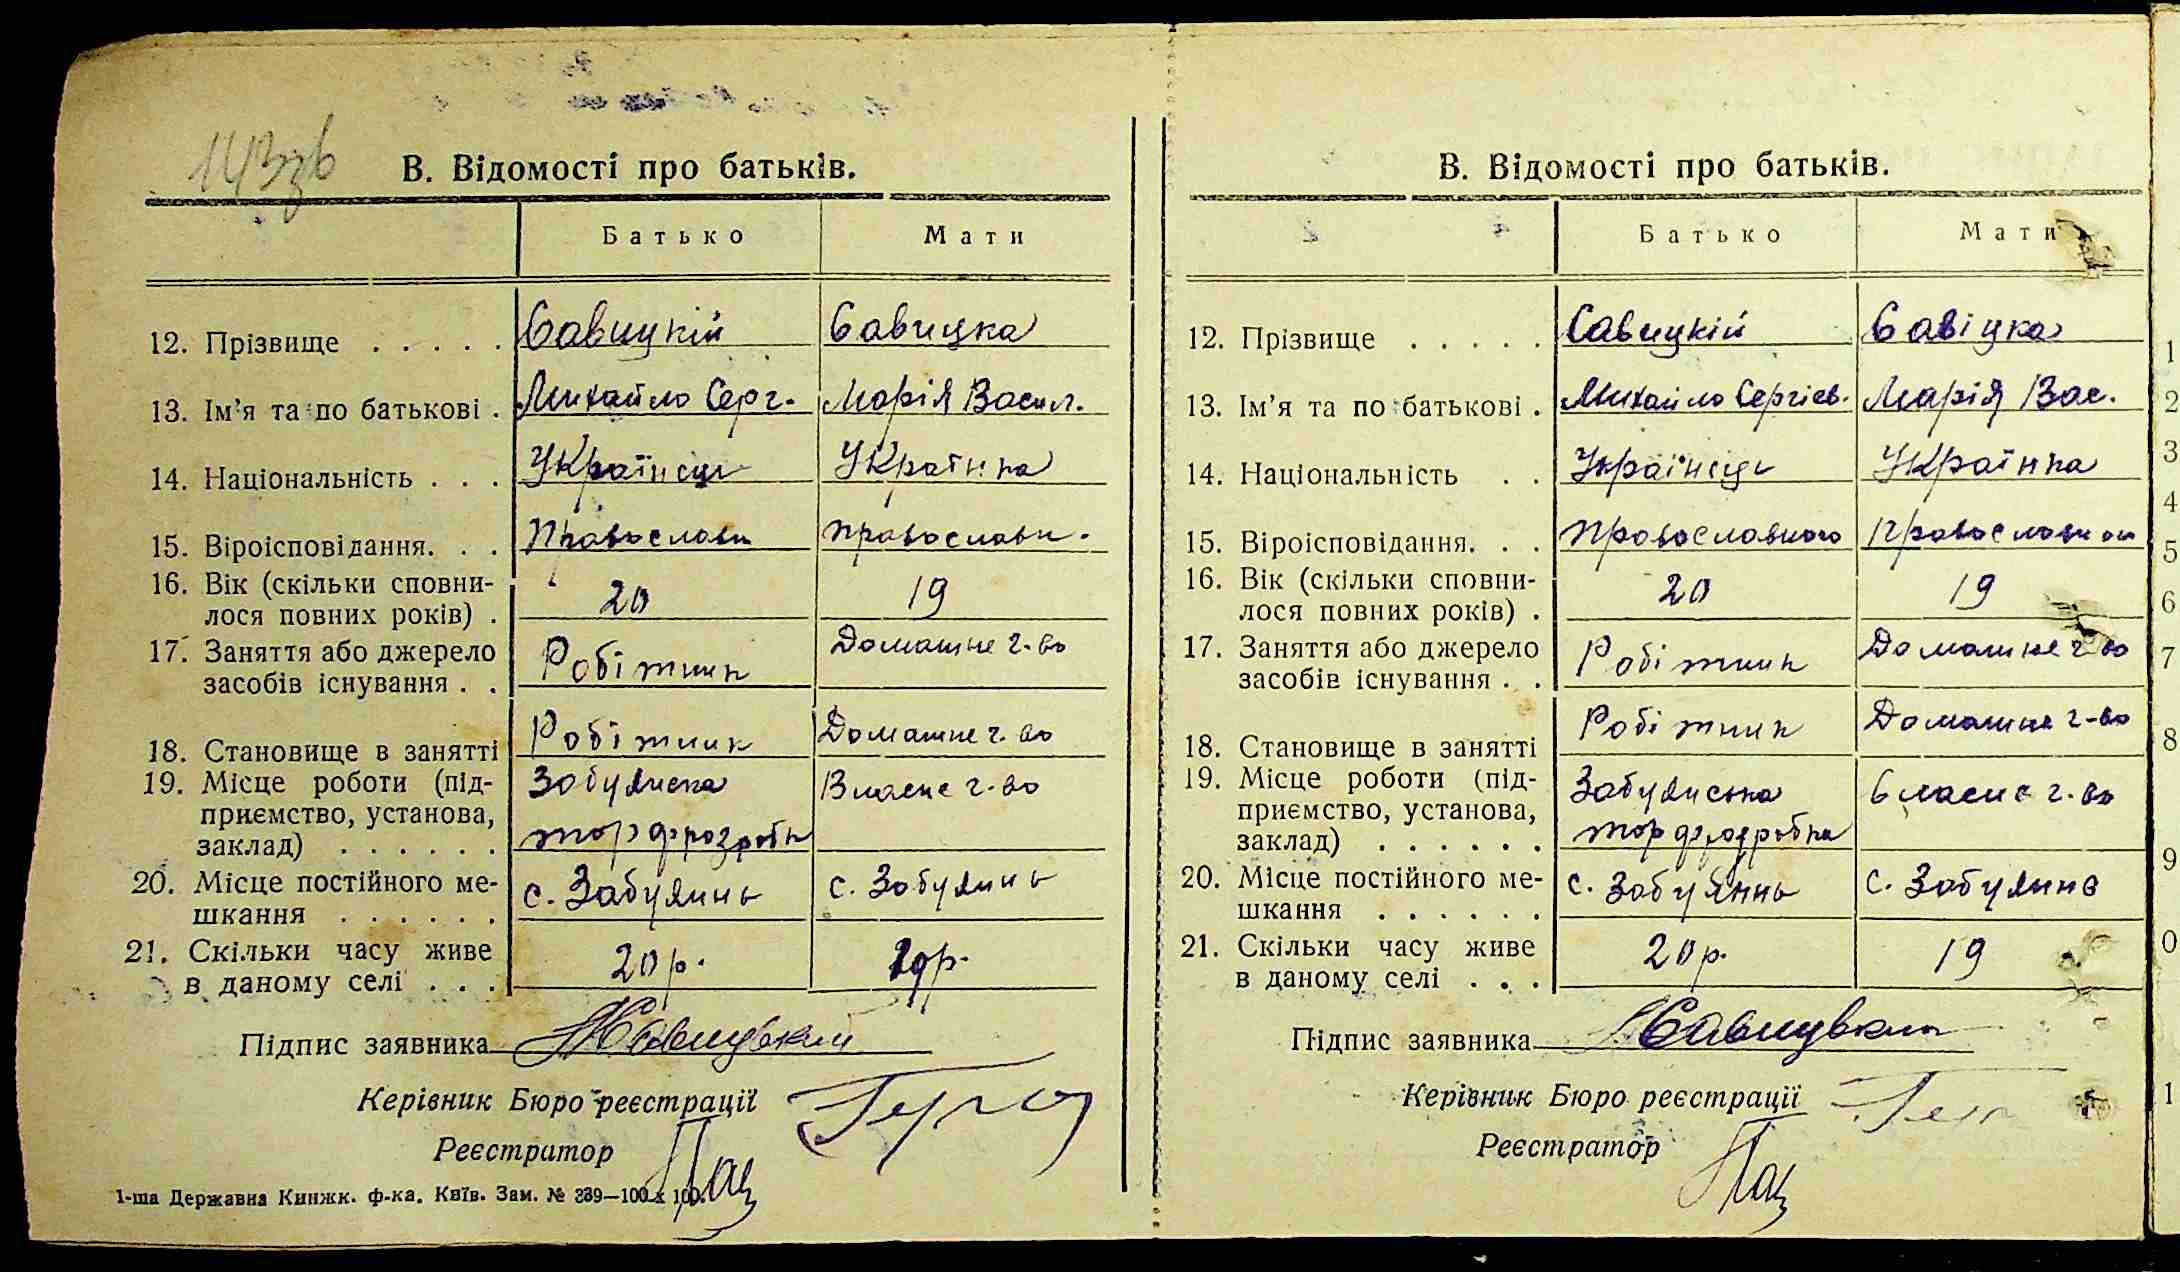 143зв
В. Відомості про батьків.
Батько Мати
12. Прізвище . . . . . Савицкій Савицка
13. Ім’я та по батькові . Михайло Серг. Марія Васил.
14. Національність . . . Українець Українка
15. Віроісповідання. . . Православн православн.
16. Вік (скільки сповни-
лося повних років) . 20 19
17. Заняття або джерело
засобів існування . . Робітник Домашнє г-во
18. Становище в занятті Робітник Домашнє г-во
19. Місце роботи (під-
приємство, установа,
заклад) . . . . . . Забуянська торфрозробка Власне г-во
20. Місце постійного ме-
шкання . . . . . . с. Забуяннь с. Забуяннь
21. Скільки часу живе
в даному селі . . . 20 р. 19 р.
Підпис заявника МСавицький
Керівник Бюро реєстрації
Реєстратор
1-ша Державна Книжк. ф-ка. Київ. Зам. № 339—100 x 100.
В. Відомості про батьків.
Батько Мати
12. Прізвище . . . . . Савицкій Савіцка
13. Ім’я та по батькові . Михайло Сергієв. Марія Вас.
14. Національність . . Українець Українка
15. Віроісповідання. . . Православного Православной
16. Вік (скільки сповни-
лося повних років) . 20 19
17. Заняття або джерело
засобів існування . . Робітник Домашнє г-во
18. Становище в занятті Робітник Домашнє г-во
19. Місце роботи (під-
приємство, установа,
заклад) . . . . . . Забуянська торфрозробка Власне г-во
20. Місце постійного ме-
шкання . . . . . . с. Забуяннь с. Забуяннь
21. Скільки часу живе
в даному селі . . . 20 р. 19
Підпис заявника МСавицький
Керівник Бюро реєстрації
Реєстратор
1
2
3
4
5
6
7
8
9
0
1